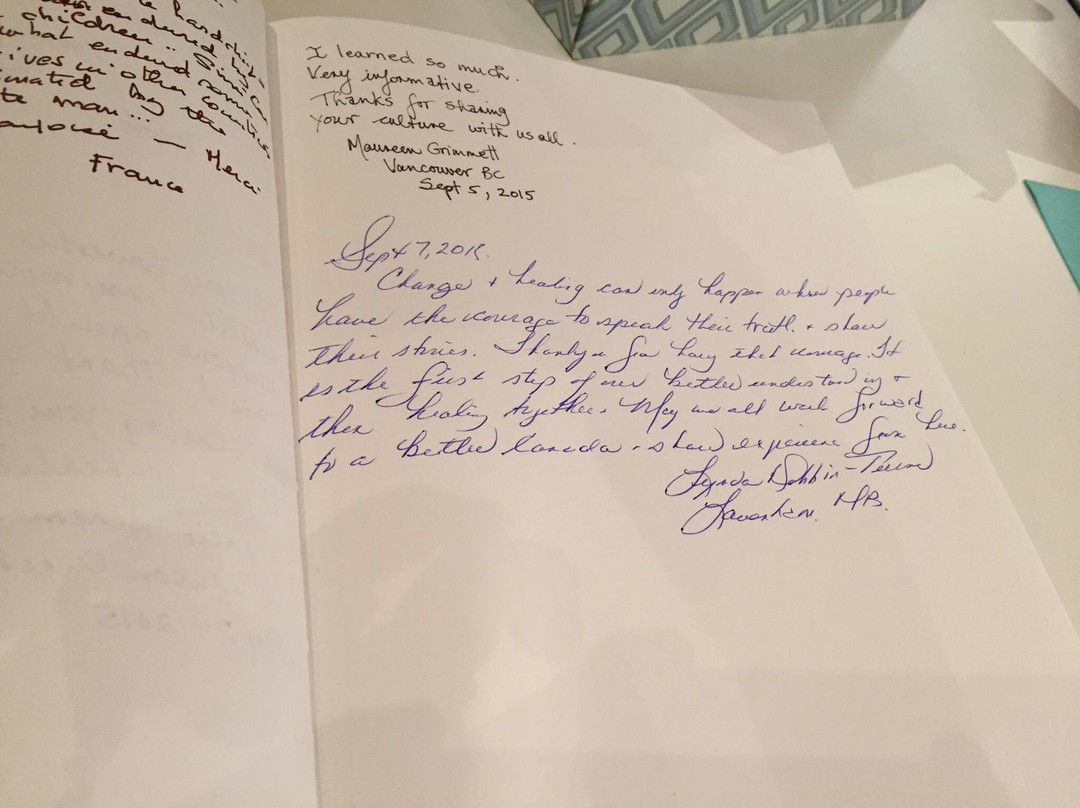 hardship
endured by
children
what endured
lives in other countries
by the
man... — Merci
France
I learned so much.
Very informative
Thanks for sharing
your culture with us all.
Maureen Grimmett
Vancouver BC
Sept 5, 2015
Sept 7, 2015.
Change + healing can only happen when people
have the courage to speak their truth + share
their stories. Thank you for having that courage. It
is the first step of our better understanding +
then healing together. May we all work forward
to a better Canada + share experience from here.
Lynda Dobbin-
MB.